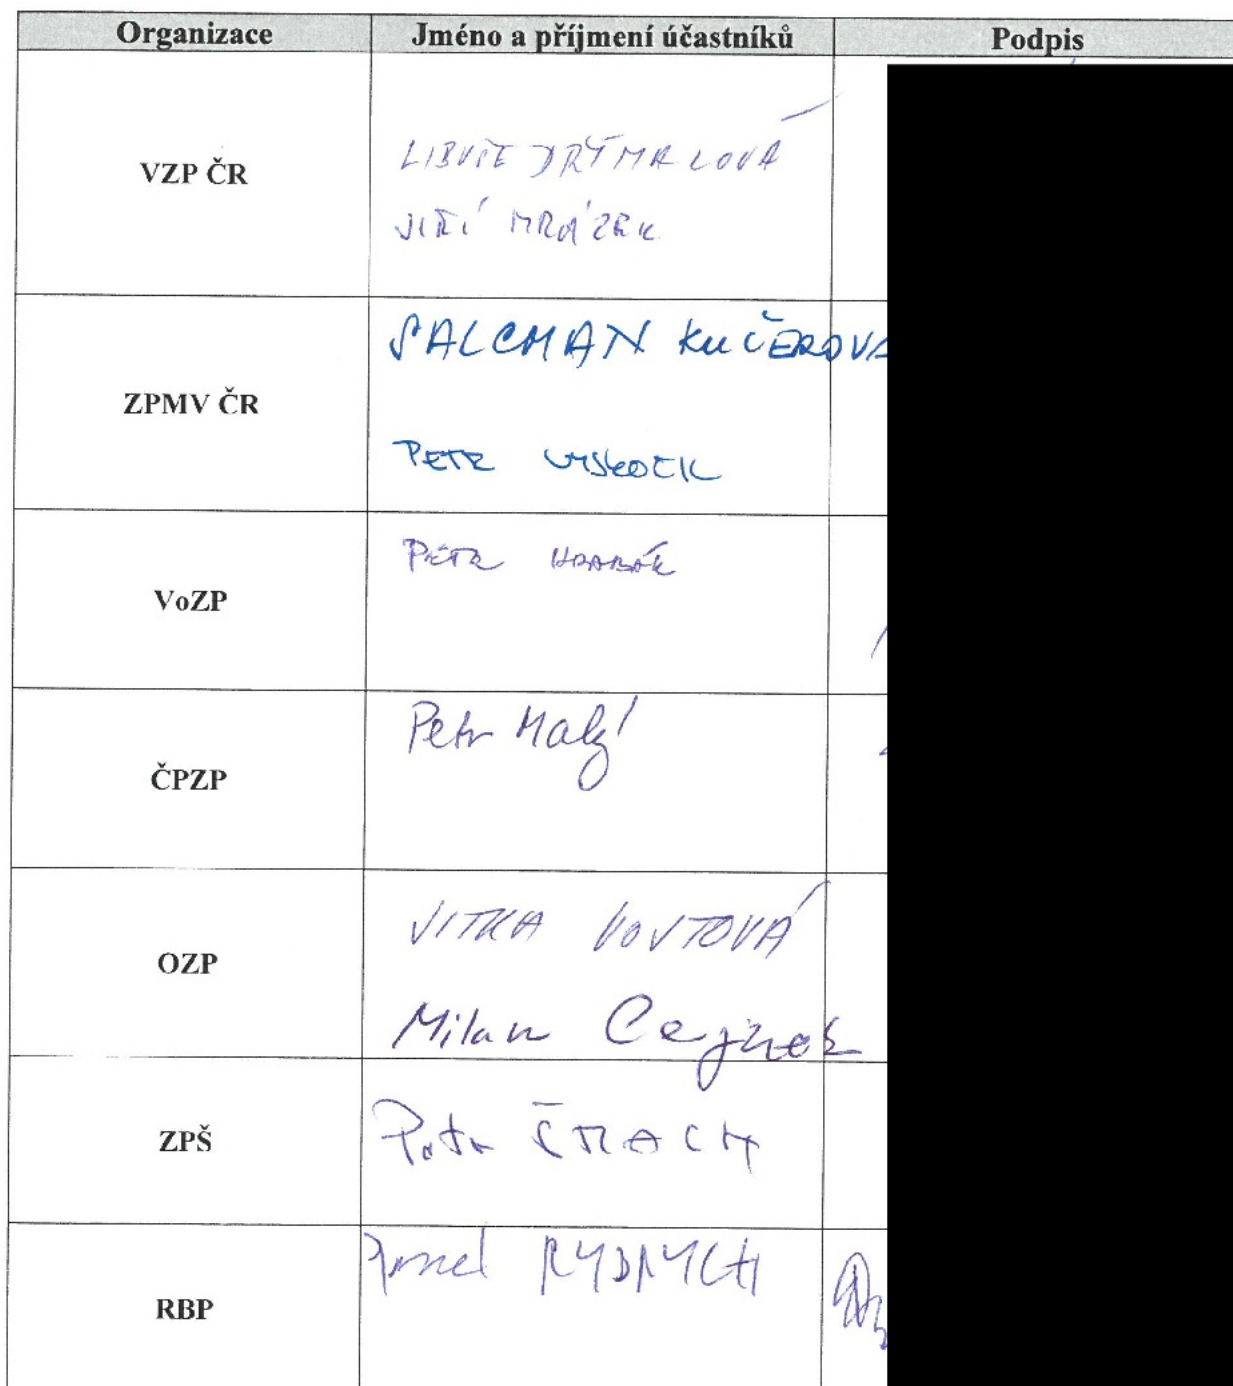 Organizace Jméno a příjmení účastníků Podpis
VZP ČR
LIBUŠE DRÝMALOVÁ
JIŘÍ MRÁZEK
ZPMV ČR
SALCMAN KUČEROVÁ
PETR VYSKOČIL
VoZP
PETR HRABÁK
ČPZP
Petr Malý
OZP
JITKA VOJTOVÁ
Milan Cejnek
ZPŠ
Petr ŠMACH
RBP
RYDRYCH